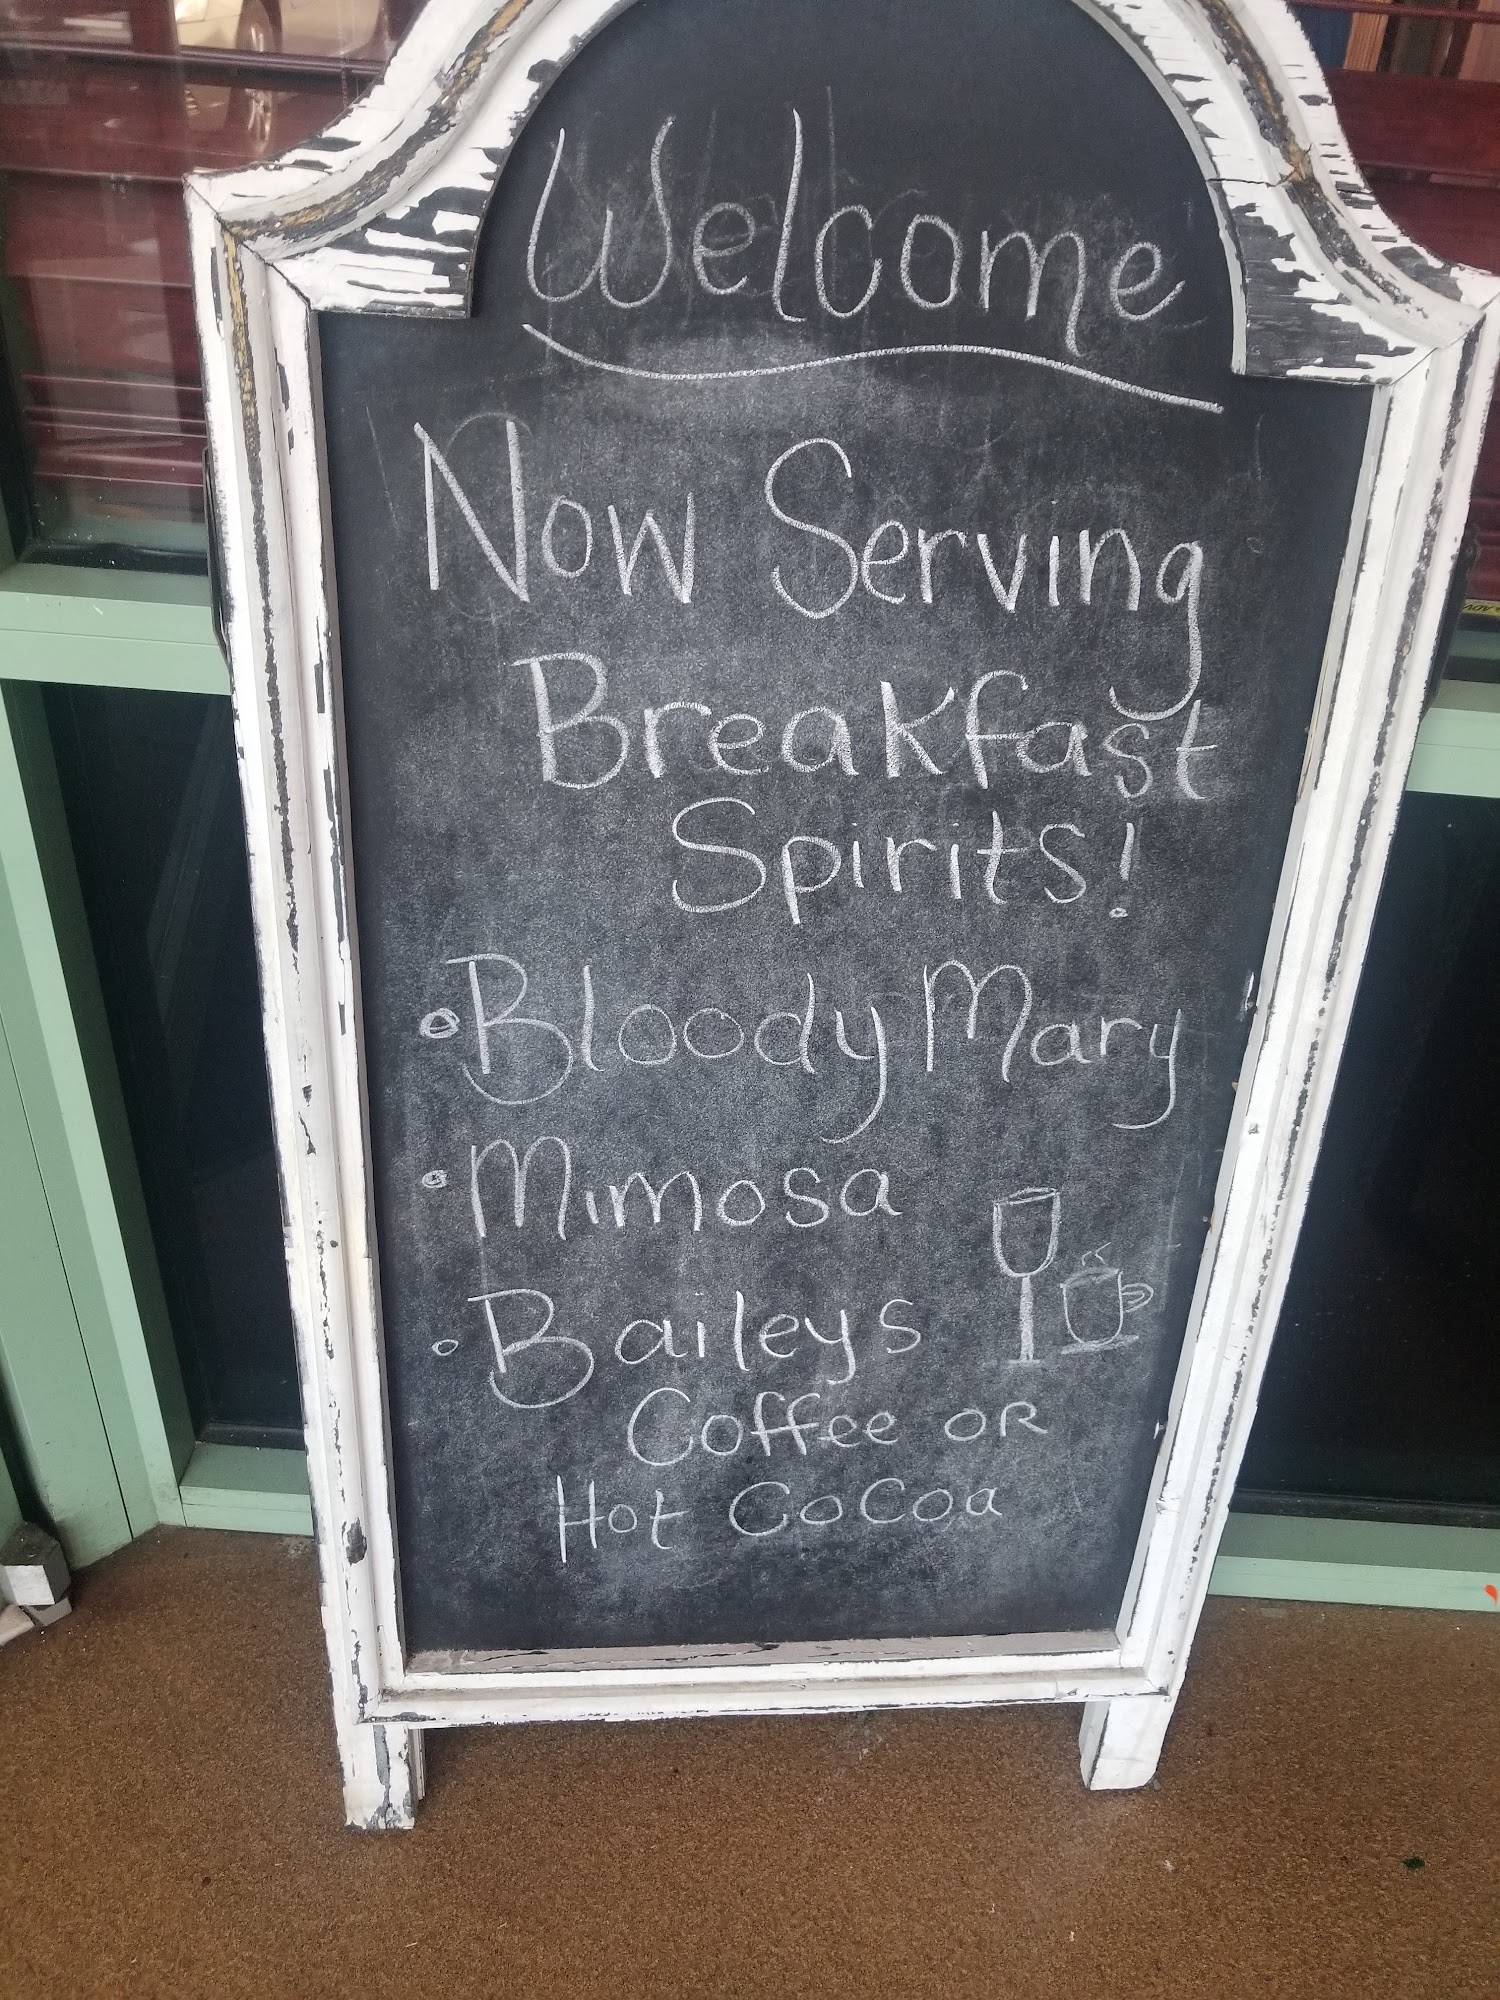 Welcome
Now Serving
Breakfast
Spirits!
Bloody Mary
Mimosa
Baileys
Coffee OR
Hot Cocoa